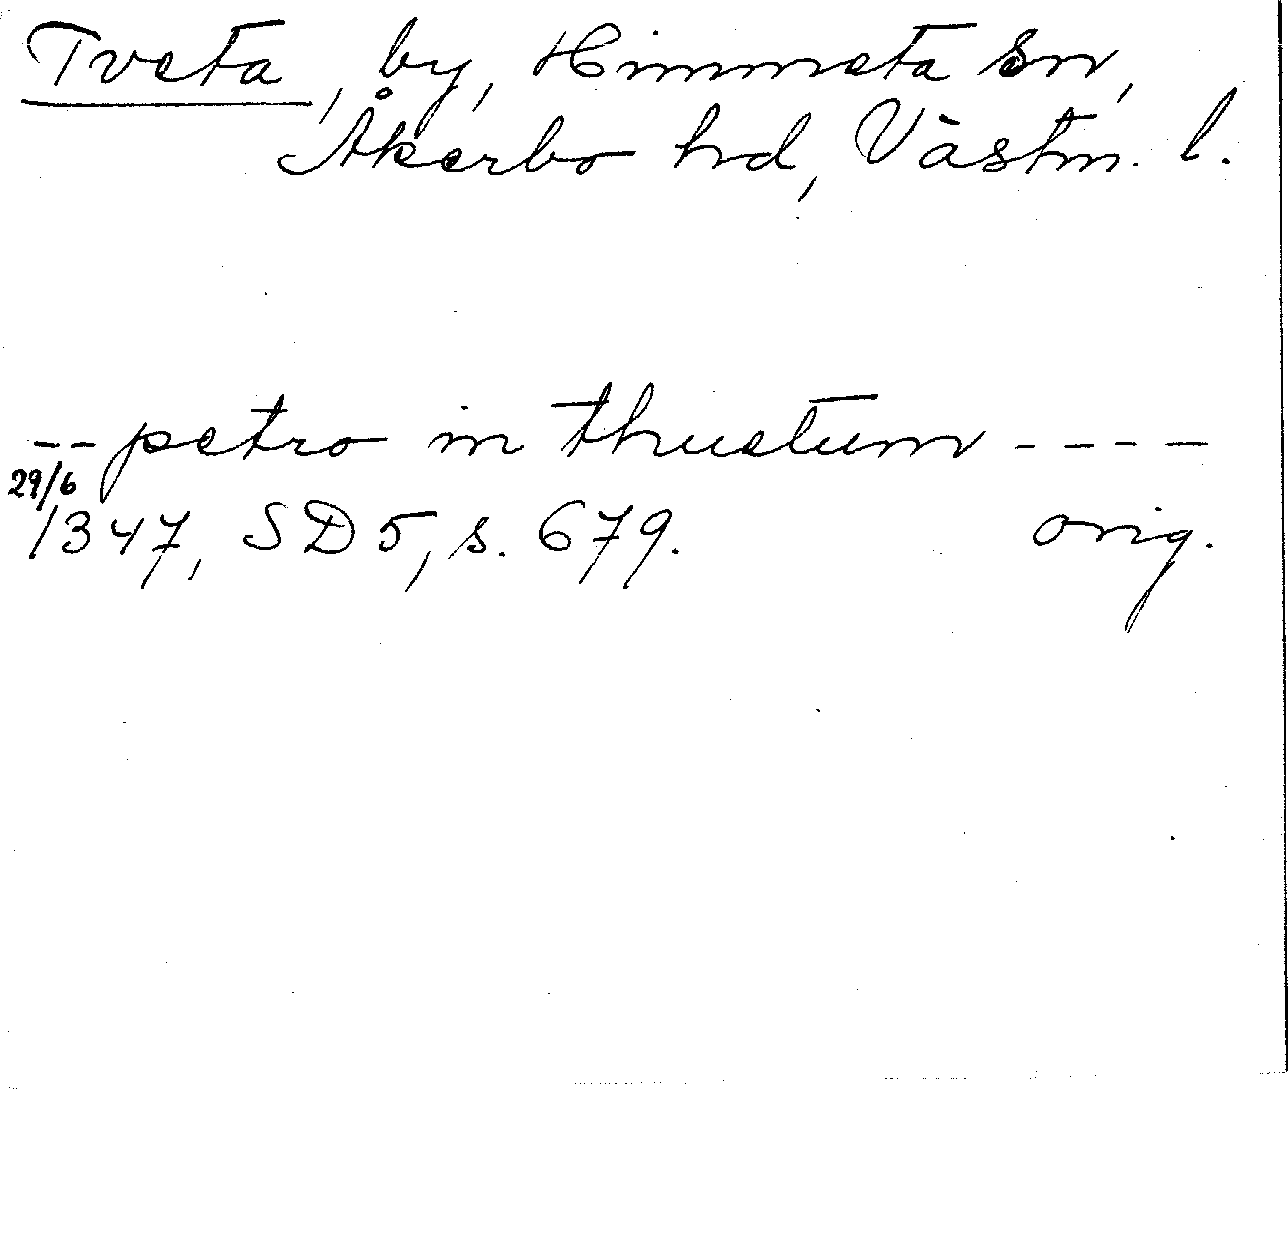 Tveta, by, Himmeta sn,
Åkerbo hrd, Västm. l.
-- petro in thuetum ----
29/6
1347, SD 5, s. 679. orig.